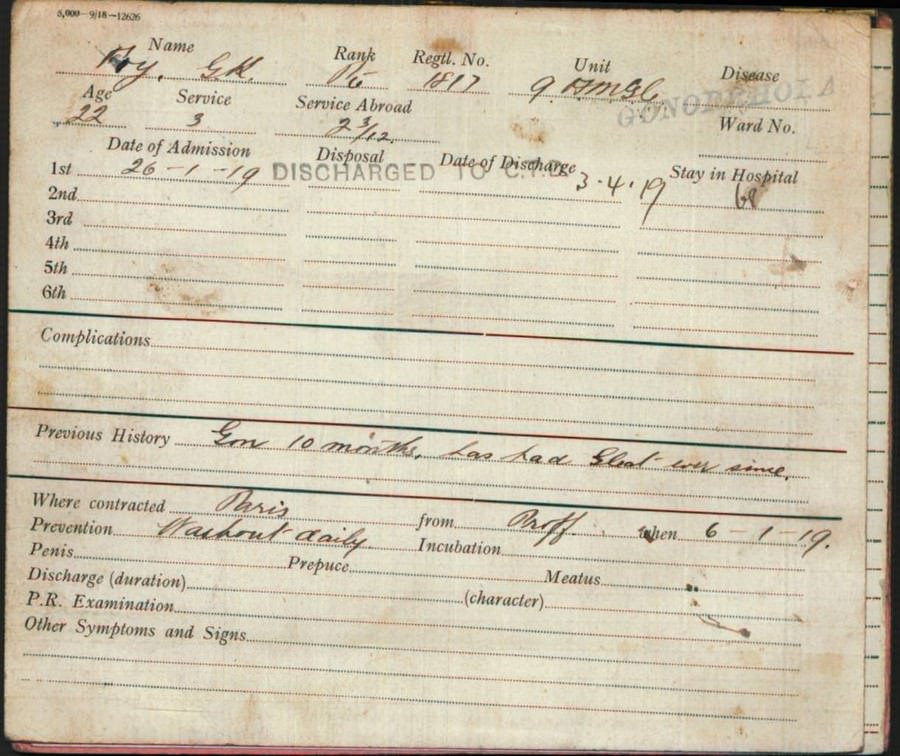 5,000—9/18—12626
Name Rank Regtl. No. Unit Disease
G.H. Pte 1817 9 GONORRHOEA
Age Service Service Abroad Ward No.
22 3 2 3/12
Date of Admission Disposal Date of Discharge Stay in Hospital
1st 26-1-19 DISCHARGED TO 3.4.19 68
2nd
3rd
4th
5th
6th
Complications
Previous History Gon 10 months. has had Gleet ever since.
Where contracted Paris from Proff. when 6-1-19.
Prevention Washout daily Incubation
Penis Prepuce Meatus
Discharge (duration) (character)
P.R. Examination
Other Symptoms and Signs